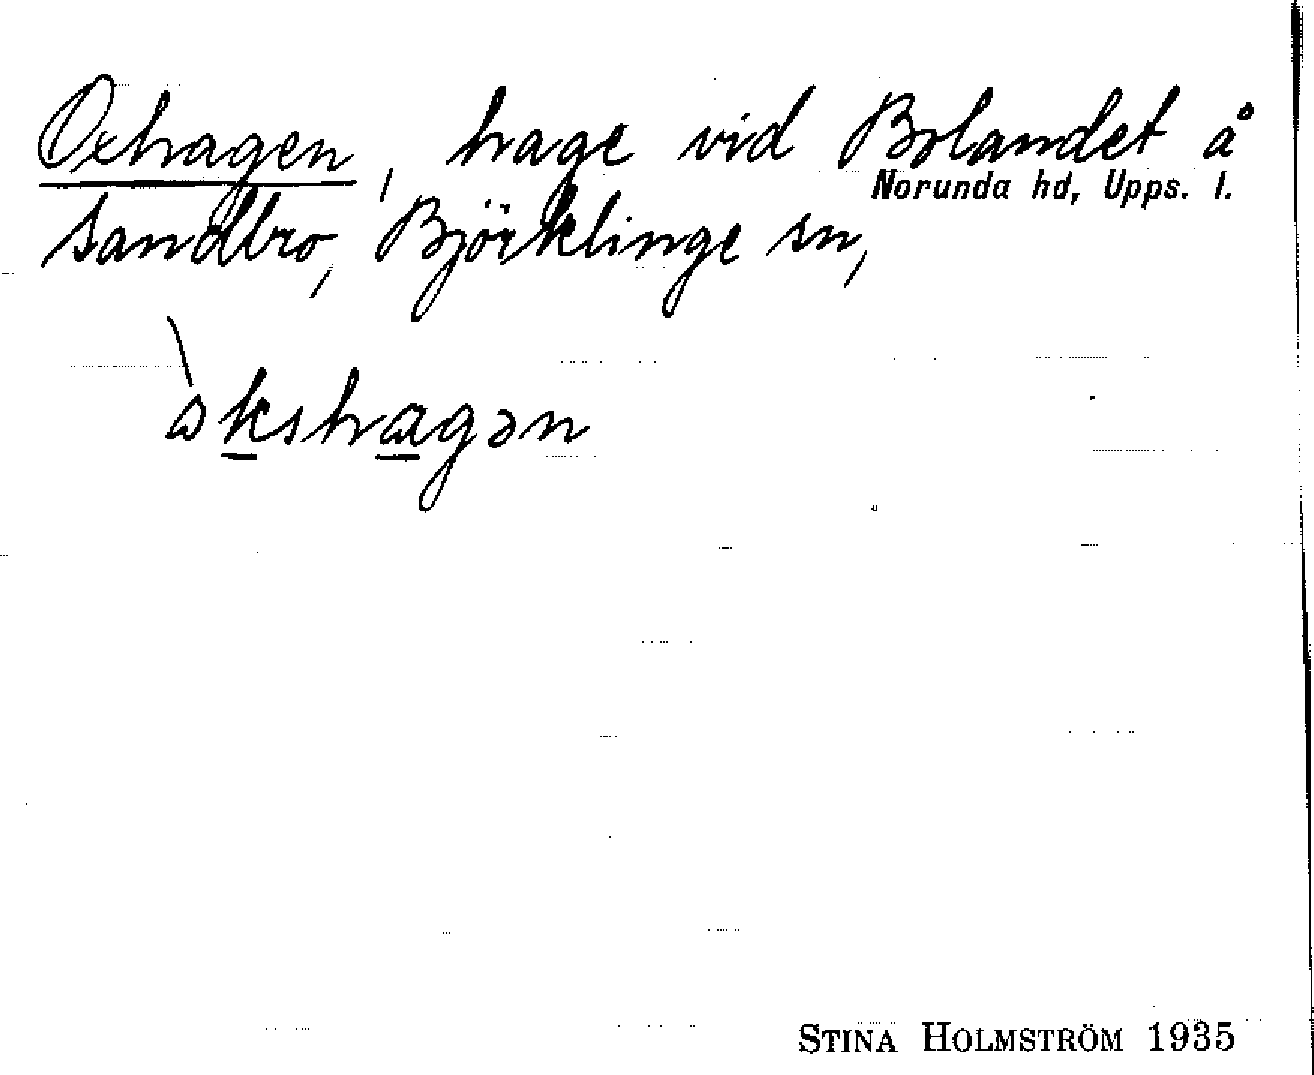 Oxhagen, hage vid Bolandet å
Norunda hd, Upps. l.
Sandbro, Björklinge sn,
\okshagən
STINA HOLMSTRÖM 1935